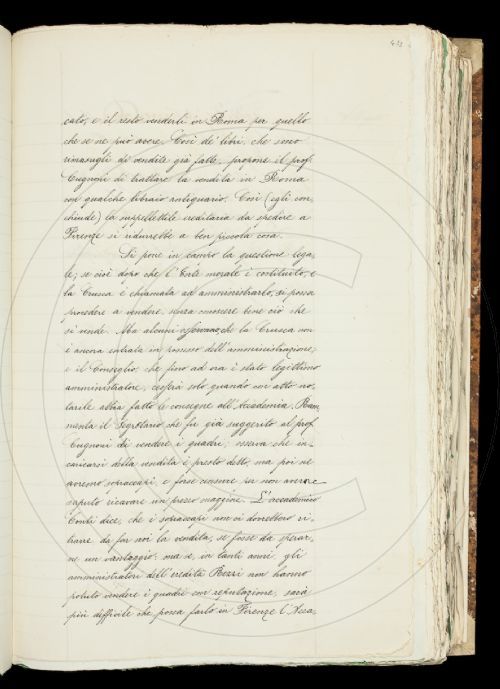 cato, e il resto venderli in Roma per quello
che se ne può avere. Così de' libri, che sono
rimasugli di vendite già fatte, propone il prof.
Cugnoni di trattare la vendita in Roma
con qualche libraio antiquario. Così (egli con-
chiude) la suppellettile ereditaria da spedire a
Firenze si ridurrebbe a ben piccola cosa.
Si pone in campo la questione lega-
le; se cioè dopo che l'Ente morale è costituito, e
la Crusca è chiamata ad amministrarlo, si possa
procedere a vendere, senza conoscere bene ciò che
si vende. Ma alcuni osservano che la Crusca non
è ancora entrata in possesso dell'amministrazione,
e il Consiglio, che fino ad ora è stato legittimo
amministratore, cesserà solo quando con atto no-
tarile abbia fatto le consegne all'Accademia. Ram-
menta il Segretario che fu già suggerito al prof.
Cugnoni di vendere i quadri; osserva che in-
caricarsi della vendita è presto detto, ma poi ne
avremo sopraccapi, e forse censure per non avere
saputo ricavare un prezzo maggiore. L'accademico
Conti dice, che i sopraccapi non ci dovrebbero ri-
trarre da far noi la vendita, se fosse da sperar-
ne un vantaggio; ma se, in tanti anni, gli
amministratori dell'eredità Rezzi non hanno
potuto vendere i quadri con reputazione, sarà
più difficile che possa farlo in Firenze l'Acca-